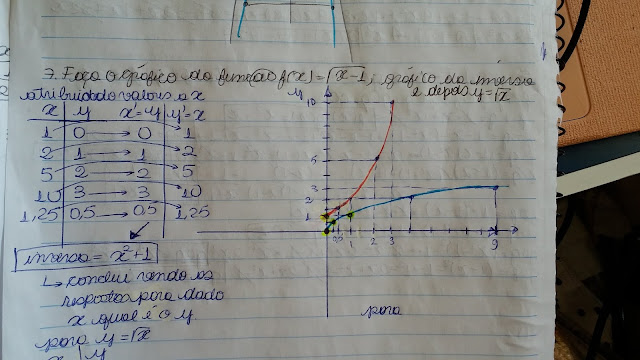 7. Faça o gráfico da função f(x) = √x-1, gráfico da inversa
e depois y = √x
atribuindo valores a x
x | y x=y y=x
1 0 → 0 1
2 1 → 1 2
5 2 → 2 5
10 3 → 3 10
1,25 0,5 → 0,5 1,25
inversa = x²+1
↳ conclui vendo as
respostas para dado
x qual é o y.
para y = √x
x | y
y
10
5
3
2
1
1 2 3 4 9
para